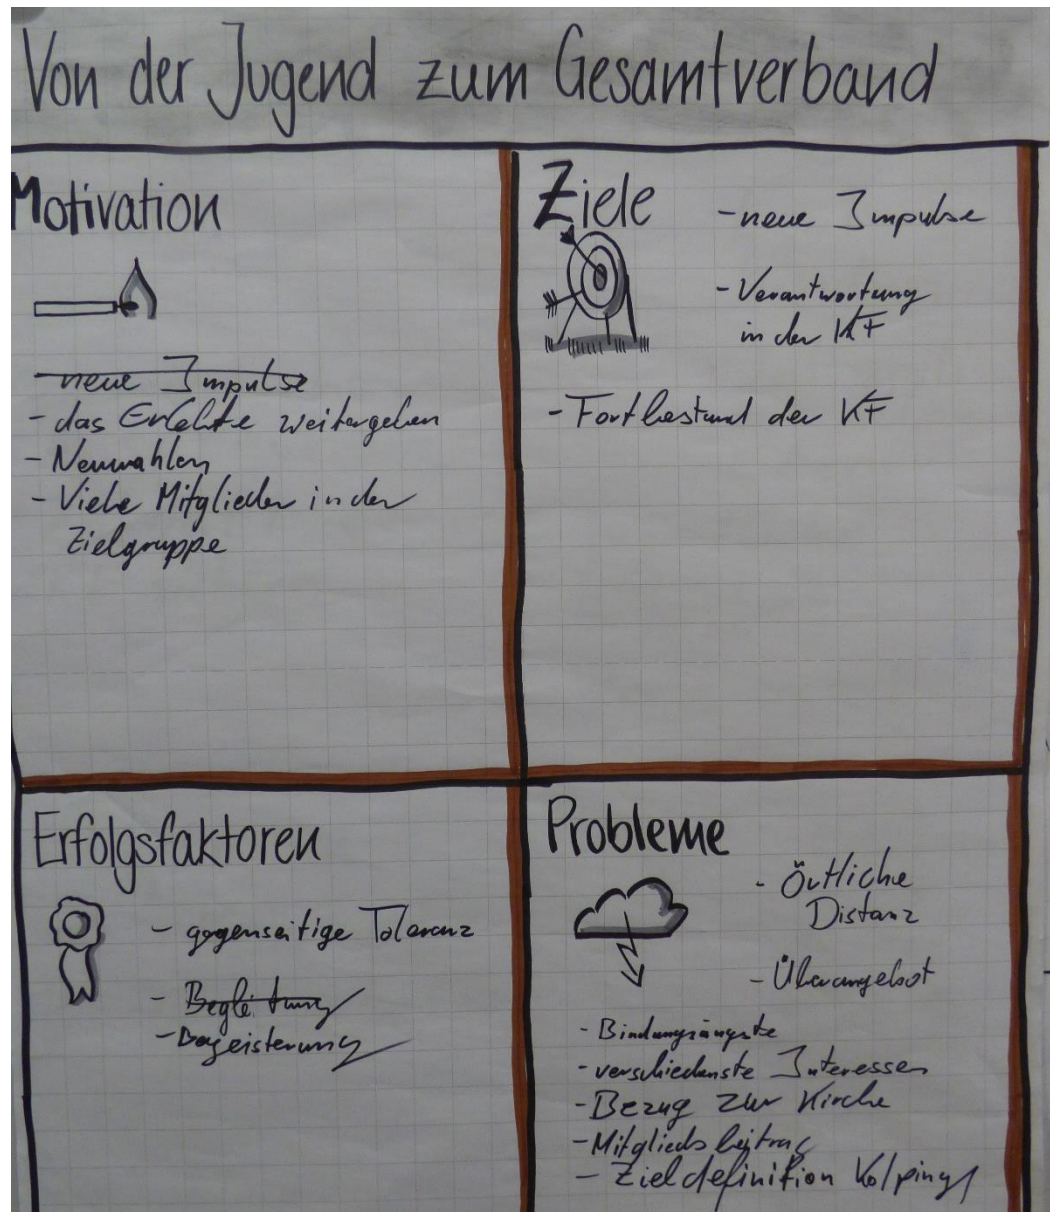 Von der Jugend zum Gesamtverband
Motivation
neue Impulse
- das Erlebte weitergeben
- Neuwahlen
- Viele Mitglieder in der
Zielgruppe
Ziele
- neue Impulse
- Verantwortung
in der KF
- Fortbestand der KF
Erfolgsfaktoren
- gegenseitige Toleranz
- Begleitung
- Begeisterung
Probleme
- Örtliche
Distanz
- Überangebot
- Bindungsängste
- verschiedenste Interessen
- Bezug zur Kirche
- Mitgliedsbeitrag
- Zieldefinition Kolpings